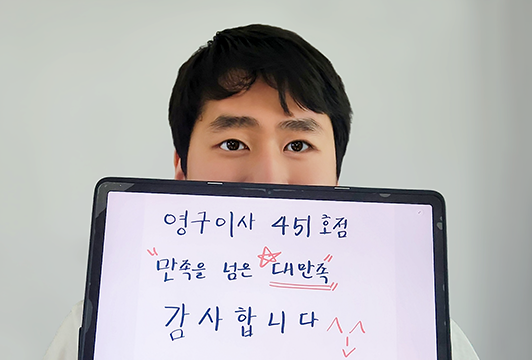 영구이사 451호점
"만족을 넘은 ☆대만족"
감사합니다 ^^